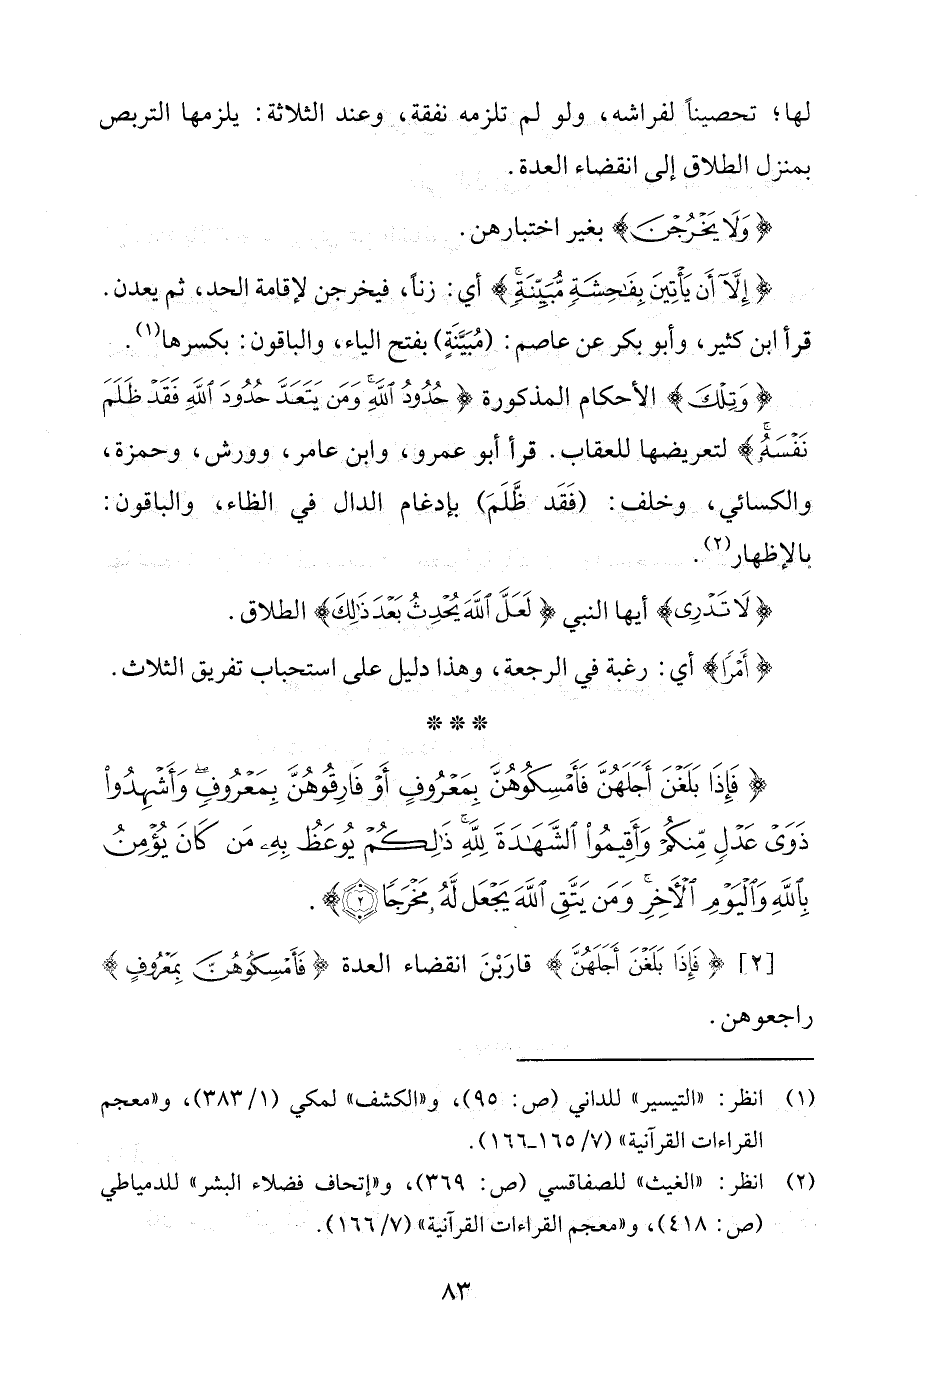 لها؛ تحصيناً لفراشه، ولو لم تلزمه نفقة، وعند الثلاثة: يلزمها التربص
بمنزل الطلاق إلى انقضاء العدة.
﴿وَلَا يَخْرُجْنَ﴾ بغير اختبارهن.
﴿إِلَّآ أَن يَأْتِينَ بِفَٰحِشَةٍ مُّبَيِّنَةٍ ۚ﴾ أي: زناً، فيخرجن لإقامة الحد، ثم يعدن.
قرأ ابن كثير، وأبو بكر عن عاصم: (مُبَيَّنَةٍ) بفتح الياء، والباقون: بكسرها(١).
﴿وَتِلْكَ﴾ الأحكام المذكورة ﴿حُدُودُ ٱللَّهِ ۚ وَمَن يَتَعَدَّ حُدُودَ ٱللَّهِ فَقَدْ ظَلَمَ
نَفْسَهُۥ ۚ﴾ لتعريضها للعقاب. قرأ أبو عمرو، وابن عامر، وورش، وحمزة،
والكسائي، وخلف: (فَقَد ظَّلَمَ) بإدغام الدال في الظاء، والباقون:
بالإظهار(٢).
﴿لَا تَدْرِى﴾ أيها النبي ﴿لَعَلَّ ٱللَّهَ يُحْدِثُ بَعْدَ ذَٰلِكَ﴾ الطلاق.
﴿أَمْرًا﴾ أي: رغبة في الرجعة، وهذا دليل على استحباب تفريق الثلاث.
* * *
﴿فَإِذَا بَلَغْنَ أَجَلَهُنَّ فَأَمْسِكُوهُنَّ بِمَعْرُوفٍ أَوْ فَارِقُوهُنَّ بِمَعْرُوفٍ ۖ وَأَشْهِدُوا۟
ذَوَىْ عَدْلٍ مِّنكُمْ وَأَقِيمُوا۟ ٱلشَّهَٰدَةَ لِلَّهِ ۚ ذَٰلِكُمْ يُوعَظُ بِهِۦ مَن كَانَ يُؤْمِنُ
بِٱللَّهِ وَٱلْيَوْمِ ٱلْأَخِرِ ۚ وَمَن يَتَّقِ ٱللَّهَ يَجْعَل لَّهُۥ مَخْرَجًا ٢﴾.
[٢] ﴿فَإِذَا بَلَغْنَ أَجَلَهُنَّ﴾ قارَبْنَ انقضاء العدة ﴿فَأَمْسِكُوهُنَّ بِمَعْرُوفٍ﴾
راجعوهن.
(١) انظر: «التيسير» للداني (ص: ٩٥)، و«الكشف» لمكي (١/ ٣٨٣)، و«معجم
القراءات القرآنية» (٧/ ١٦٥-١٦٦).
(٢) انظر: «الغيث» للصفاقسي (ص: ٣٦٩)، و«إتحاف فضلاء البشر» للدمياطي
(ص: ٤١٨)، و«معجم القراءات القرآنية» (٧/ ١٦٦).
٨٣